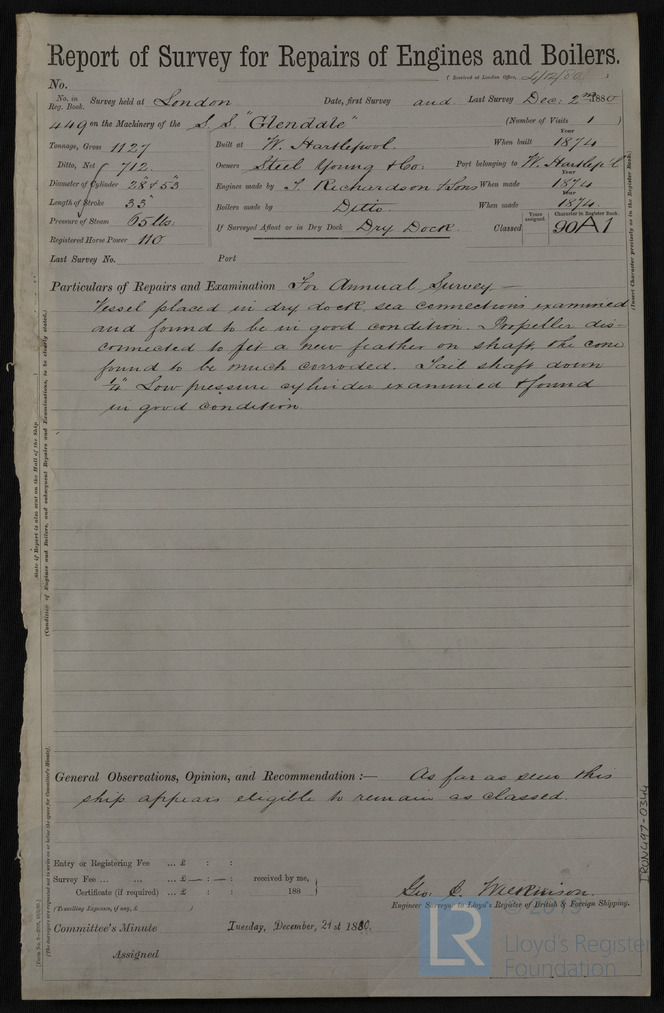 Report of Survey for Repairs of Engines and Boilers.
No. (Received at London Office, 4/12/80 )
No. in Reg. Book. Survey held at London Date, first Survey and Last Survey Dec: 2nd 1880
449 on the Machinery of the S.S. "Glendale" (Number of Visits 1 )
Tonnage, Gross 1127 Built at W. Hartlepool. When built Year 1874
Ditto, Net 712 Owners Steel Young & Co: Port belonging to W. Hartlep'l
Diameter of Cylinder 28" & 53 Engines made by T. Richardson & Sons When made Year 1874
Length of Stroke 33" Boilers made by Ditto. When made Year 1874.
Pressure of Steam 65 lbs. If Surveyed Afloat or in Dry Dock Dry Dock. Classed Years assigned Character in Register Book. 90A1
Registered Horse Power 110
Last Survey No. Port
Particulars of Repairs and Examination For Annual Survey —
Vessel placed in dry dock, sea connections examined
and found to be in good condition. Propeller dis-
connected to fit a new feather on shaft, the cone
found to be much corroded. Tail shaft down
1/4" Low pressure cylinder examined & found
in good condition.
General Observations, Opinion, and Recommendation :— As far as seen this
ship appears eligible to remain as classed.
Entry or Registering Fee ... £ : :
Survey Fee ... ... ... £ — : — : received by me,
Certificate (if required) ... £ : : 188
(Travelling Expenses, if any, £ )
Geo: C. Wilkinson.
Engineer Surveyor to Lloyd's Register of British & Foreign Shipping.
Committee's Minute Tuesday, December, 21st 1880.
Assigned
(Insert Character precisely as in the Register Book)
State if Report is also sent on the Hull of the Ship.
(Condition of Engines and Boilers, and subsequent Repairs and Examinations, to be clearly stated.)
(The Surveyors are requested not to write on or below the space for Committee's Minute).
IRON497-0344
LR
Lloyd's Register
Foundation